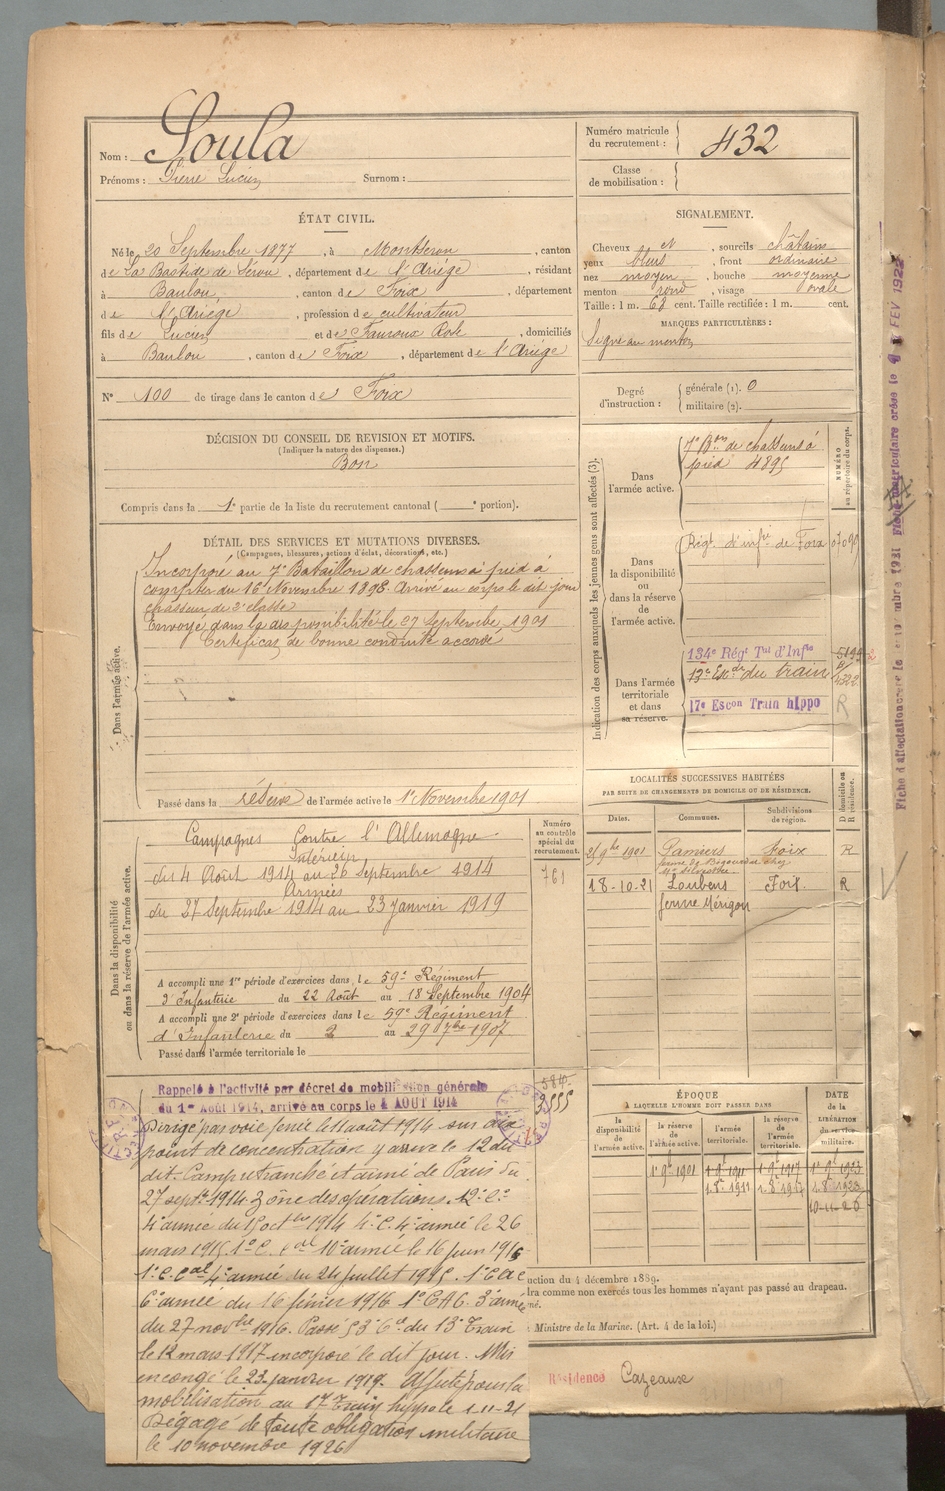 Nom : Soula
Prénoms : Pierre Lucien Surnom :
Numéro matricule du recrutement : 432
Classe de mobilisation :
ÉTAT CIVIL.
Né le 20 Septembre 1877, à Montseron, canton
de La Bastide de Sérou, département de l'Ariège, résidant
à Baulou, canton de Foix, département
de l'Ariège, profession de cultivateur
fils de Lucien et de Rose, domiciliés
à Baulou, canton de Foix, département de l'Ariège
N° 100 de tirage dans le canton de Foix
SIGNALEMENT.
Cheveux et, sourcils châtains
yeux bleus, front ordinaire
nez moyen, bouche moyenne
menton rond, visage ovale
Taille : 1 m. 68 cent. Taille rectifiée : 1 m. cent.
MARQUES PARTICULIÈRES :
Signe au menton
Degré d'instruction : générale (1). 0
militaire (2).
DÉCISION DU CONSEIL DE REVISION ET MOTIFS.
(Indiquer la nature des dispenses.)
Bon
Compris dans la 1e partie de la liste du recrutement cantonal ( e portion).
DÉTAIL DES SERVICES ET MUTATIONS DIVERSES.
(Campagnes, blessures, actions d'éclat, décorations, etc.)
Dans l'armée active.
Incorporé au 7e Bataillon de chasseurs à pied à
compter du 16 Novembre 1898. Arrivé au corps le dit jour
chasseur de 2e classe
Envoyé dans la disponibilité le 27 Septembre 1901
Certificat de bonne conduite accordé
Passé dans la réserve de l'armée active le 1er Novembre 1901
Indication des corps auxquels les jeunes gens sont affectés (3).
NUMÉRO au répertoire du corps.
Dans l'armée active.
7e Bon de chasseurs à
pied 4895
Dans la disponibilité ou dans la réserve de l'armée active.
Régt. d'infie de Foix
Dans l'armée territoriale et dans sa réserve.
134e Régt Tal d'Infie
17e Escon Train hippo
R
LOCALITÉS SUCCESSIVES HABITÉES
PAR SUITE DE CHANGEMENTS DE DOMICILE OU DE RÉSIDENCE.
D domicile ou R résidence.
Dates. Communes. Subdivisions de région.
9bre 1901 Pamiers Foix R
18-10-21 Loubens Foix. R
ferme Mérigon
Dans la disponibilité ou dans la réserve de l'armée active.
Numéro au contrôle spécial du recrutement.
761
Campagnes Contre l'Allemagne
Intérieur
du 4 Août 1914 au 26 Septembre 1914
Armées
du 27 Septembre 1914 au 23 janvier 1919
A accompli une 1re période d'exercices dans le 59e Régiment
d'Infanterie du 22 Août au 18 Septembre 1904
A accompli une 2e période d'exercices dans le 59e Régiment
d'Infanterie du 2 au 29 7bre 1907
Passé dans l'armée territoriale le
Rappelé à l'activité par décret de mobilisation générale
du 1er Août 1914, arrivé au corps le 4 AOUT 1914
Dirigé par voie ferrée le 11 août 1914 sur
point de concentration y arrive le 12 du
dit. Camp retranché et armé de Paris du
27 septbre 1914. Zône des opérations.
4e armée du 15 octbre 1914 4e C. 4e armée le 26
mars 1915. 1e C. Cal 10e armée le 16 juin 1915
1e C. Cal 4e armée du 24 juillet 1915. 1e CAC
6e armée du 16 février 1916 1e CAC. 3e armée
du 27 novbre 1916. Passé 53e Cie du 13e Train
le 12 mars 1917 incorporé le dit jour. Mis
en congé le 23 janvier 1919. Affecté pour la
mobilisation au 17e Train hippo le 1-11-21
Dégagé de toute obligation militaire
le 10 novembre 1926
ÉPOQUE
A LAQUELLE L'HOMME DOIT PASSER DANS
la disponibilité de l'armée active. la réserve de l'armée active. l'armée territoriale. la réserve de l'armée territoriale.
DATE de la LIBÉRATION du service militaire.
1e 9bre 1901
10-11-26
uction du 4 décembre 1889.
lra comme non exercés tous les hommes n'ayant pas passé au drapeau.
né.
Ministre de la Marine. (Art. 4 de la loi.)
Résidence Cazeaux